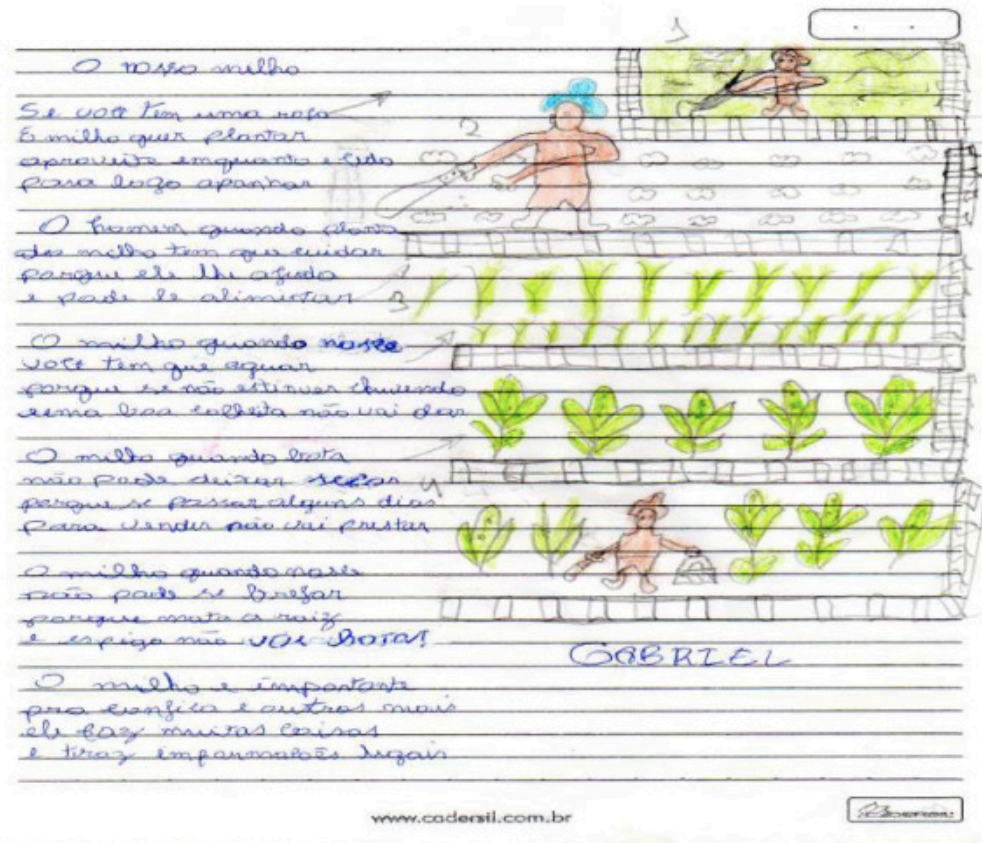 1
O nosso milho
Se você tem uma roça
E milho quer plantar
2
aproveite enquanto e cedo
para logo apanhar
O homem quando planta
des milho tem que cuidar
porque ele lhe ajuda
e pode le alimentar
3
O milho quando nasce
você tem que aguar
porque se não estinver chuvendo
uma boa colheita não vai dar
O milho quando bota
não pode deixar secar
4
porque se passar alguns dias
para vender não vai prestar
O milho quando nasce
não pode se
porque mata a raiz
e espiga não vai botar!
GABRIEL
O milho e importante
pra e outros mais
ele faz muitas coisas
e traz legais
www.cadersil.com.br